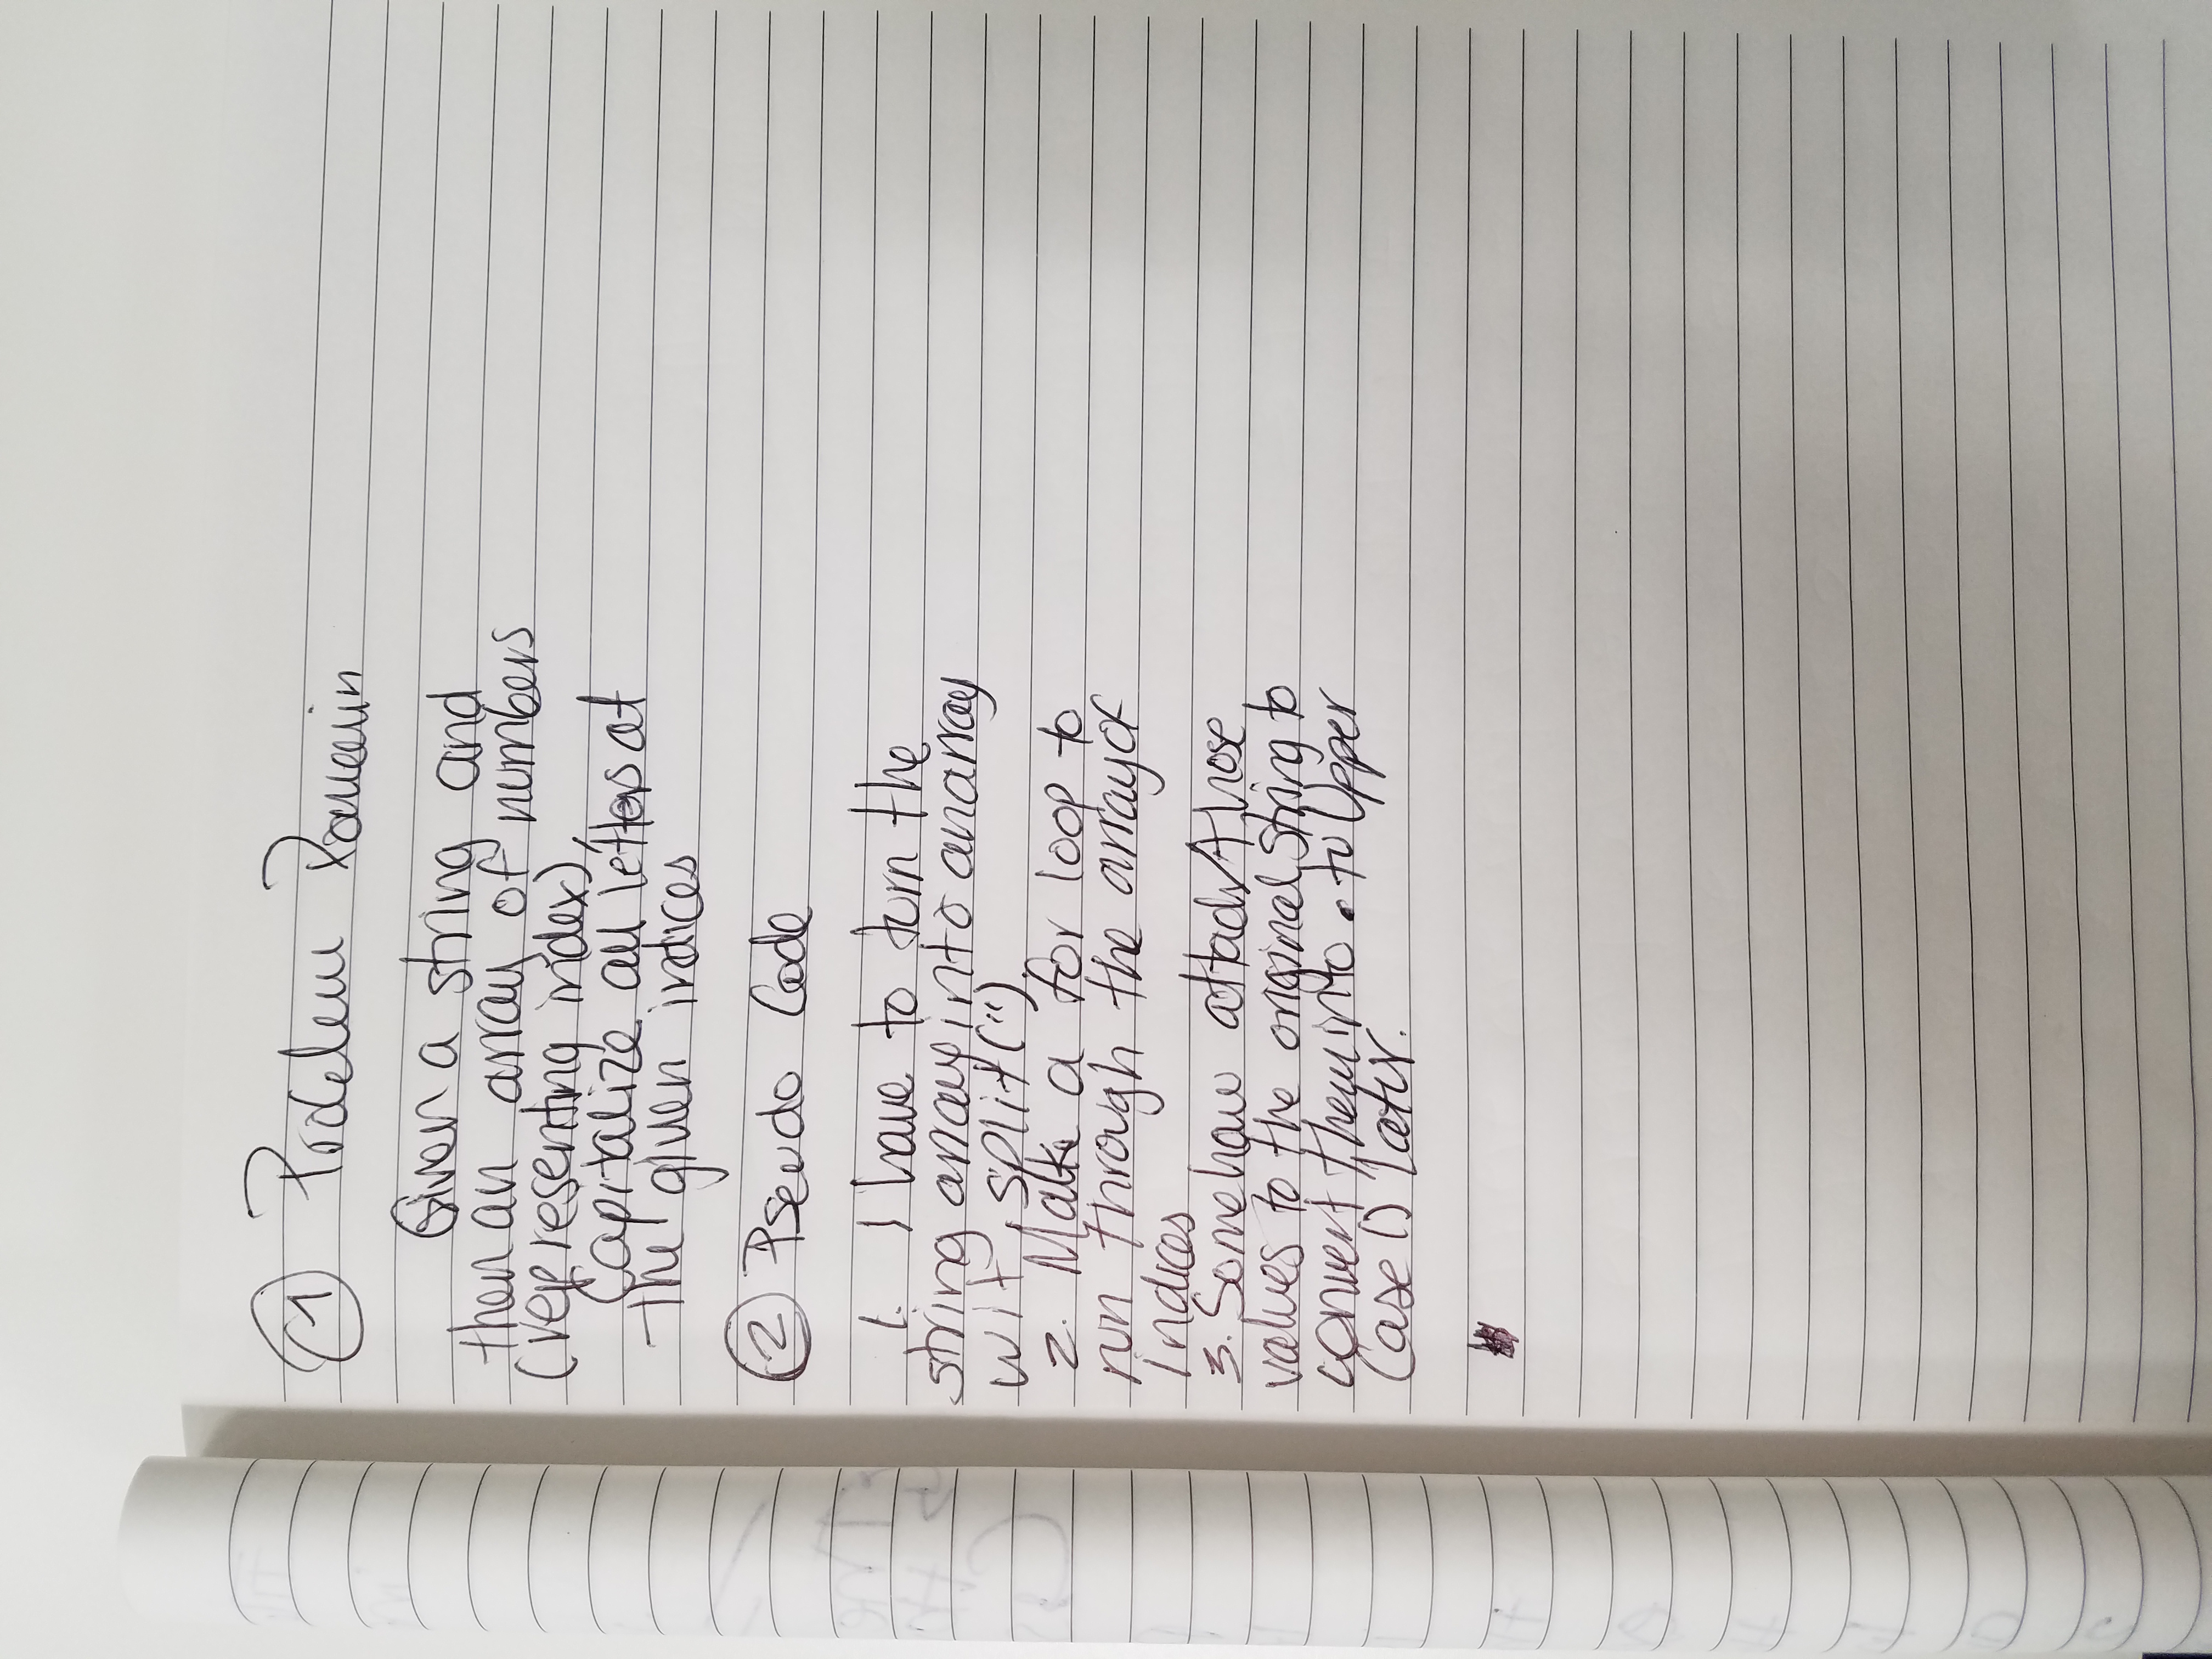 1 Problem Domain
Given a string and
then an array of numbers
(representing index),
Capitalize all letters at
the given indices
2 Pseudo Code
1. I have to turn the
string array into an array
wit .split('').
2. Make a for loop to
run through the array of
indices
3. Somehow attach those
values to the original string to
convert them into .toUpper
Case() later.